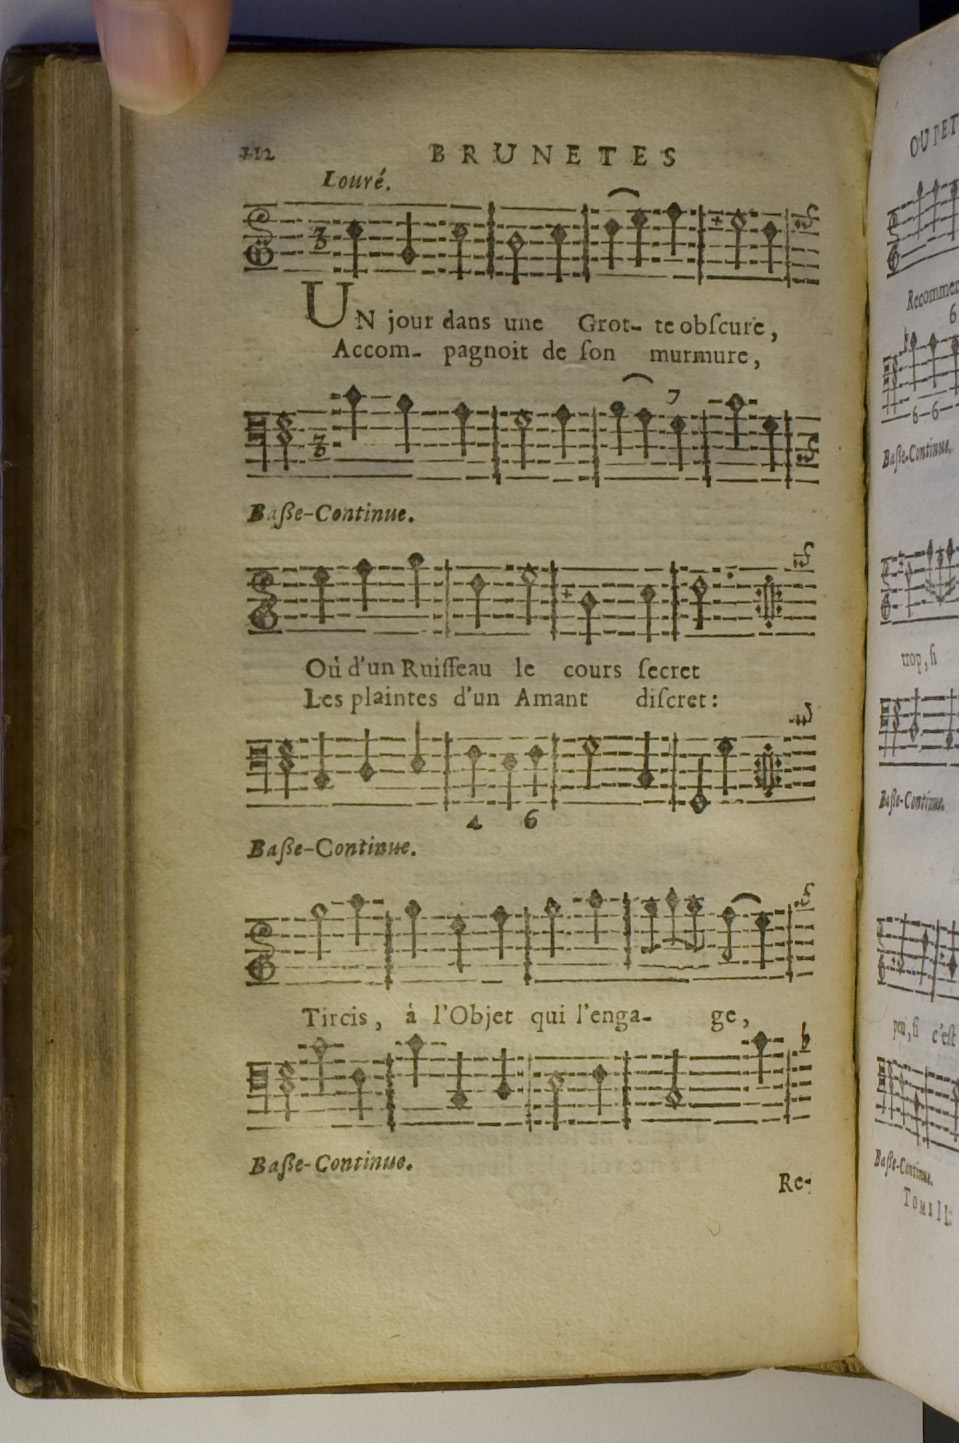 112 BRUNETES
Louré.
UN jour dans une Grot- te obſcure,
Accom- pagnoit de ſon murmure,
7
Baſſe-Continue.
Où d'un Ruiſſeau le cours ſecret
Les plaintes d'un Amant diſcret:
4 6
Baſſe-Continue.
Tircis, à l'Objet qui l'enga- ge,
Baſſe-Continue.
Re-
OU PET
Recommen
6
6-6-
Baſſe-Continue.
trop, ſi
Baſſe-Continue.
peu, ſi c'eſt
Baſſe-Continue.
Tome II.